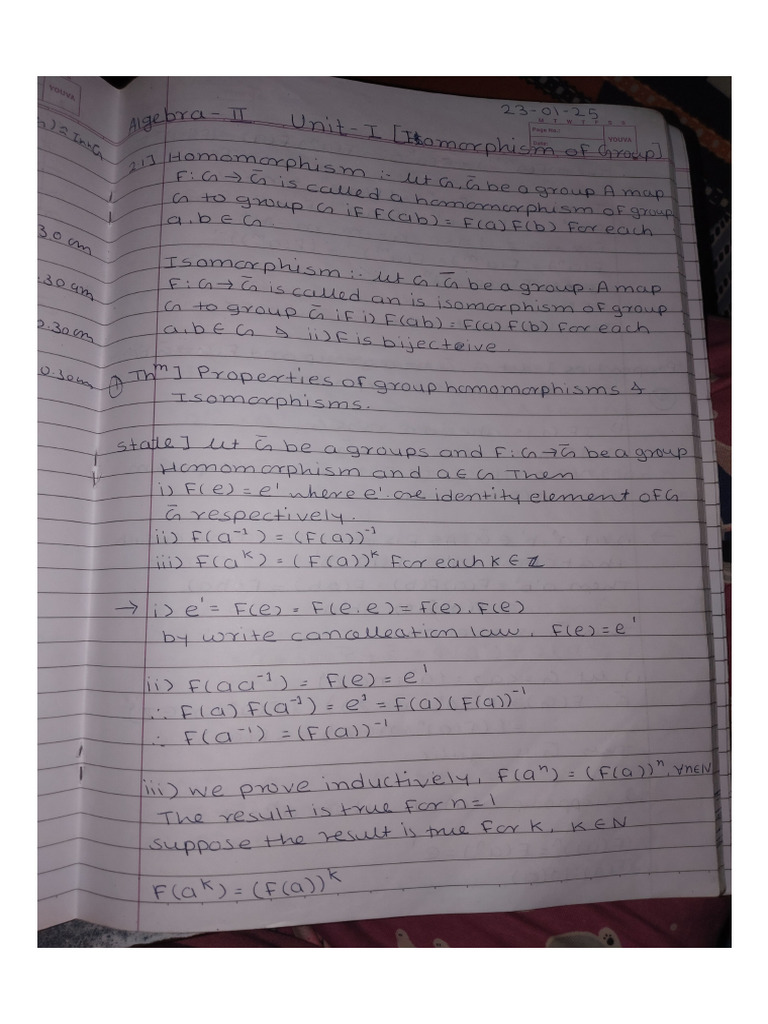 23-01-25
M T W T F S S
Page No.:
Date:
YOUVA
YOUVA
Algebra-II Unit-I [Isomorphism of Group]
2.1] Homomorphism :- let G, G̅ be a group. A map
F: G → G̅ is called a homomorphism of group
G to group G if F(ab) = F(a) F(b) for each
a.b ∈ G
Isomorphism :- let G. G̅ be a group. A map
F: G → G̅ is called an is isomorphism of group
G to group G̅ if i) F(ab) = F(a) F(b) for each
a.b ∈ G & ii) F is bijective.
① Thm] Properties of group homomorphisms &
Isomorphisms.
state] let G̅ be a groups and F: G → G̅ be a group
Homomorphism and a ∈ G Then
i) F(e) = e' where e' are identity element of G
G̅ respectively.
ii) F(a⁻¹) = (F(a))⁻¹
iii) F(aᵏ) = (F(a))ᵏ for each k ∈ ℤ
→ i) e' = F(e) = F(e.e) = F(e). F(e)
by write cancelleation law, F(e) = e'
ii) F(aa⁻¹) = F(e) = e'
∴ F(a) F(a⁻¹) = e' = F(a) (F(a))⁻¹
∴ F(a⁻¹) = (F(a))⁻¹
iii) we prove inductively, F(aⁿ) = (F(a))ⁿ, ∀n∈N
The result is true for n=1
suppose the result is true for k, k ∈ N
F(aᵏ) = (F(a))ᵏ
30 cm
.30 cm
0.30cm
0.30cm